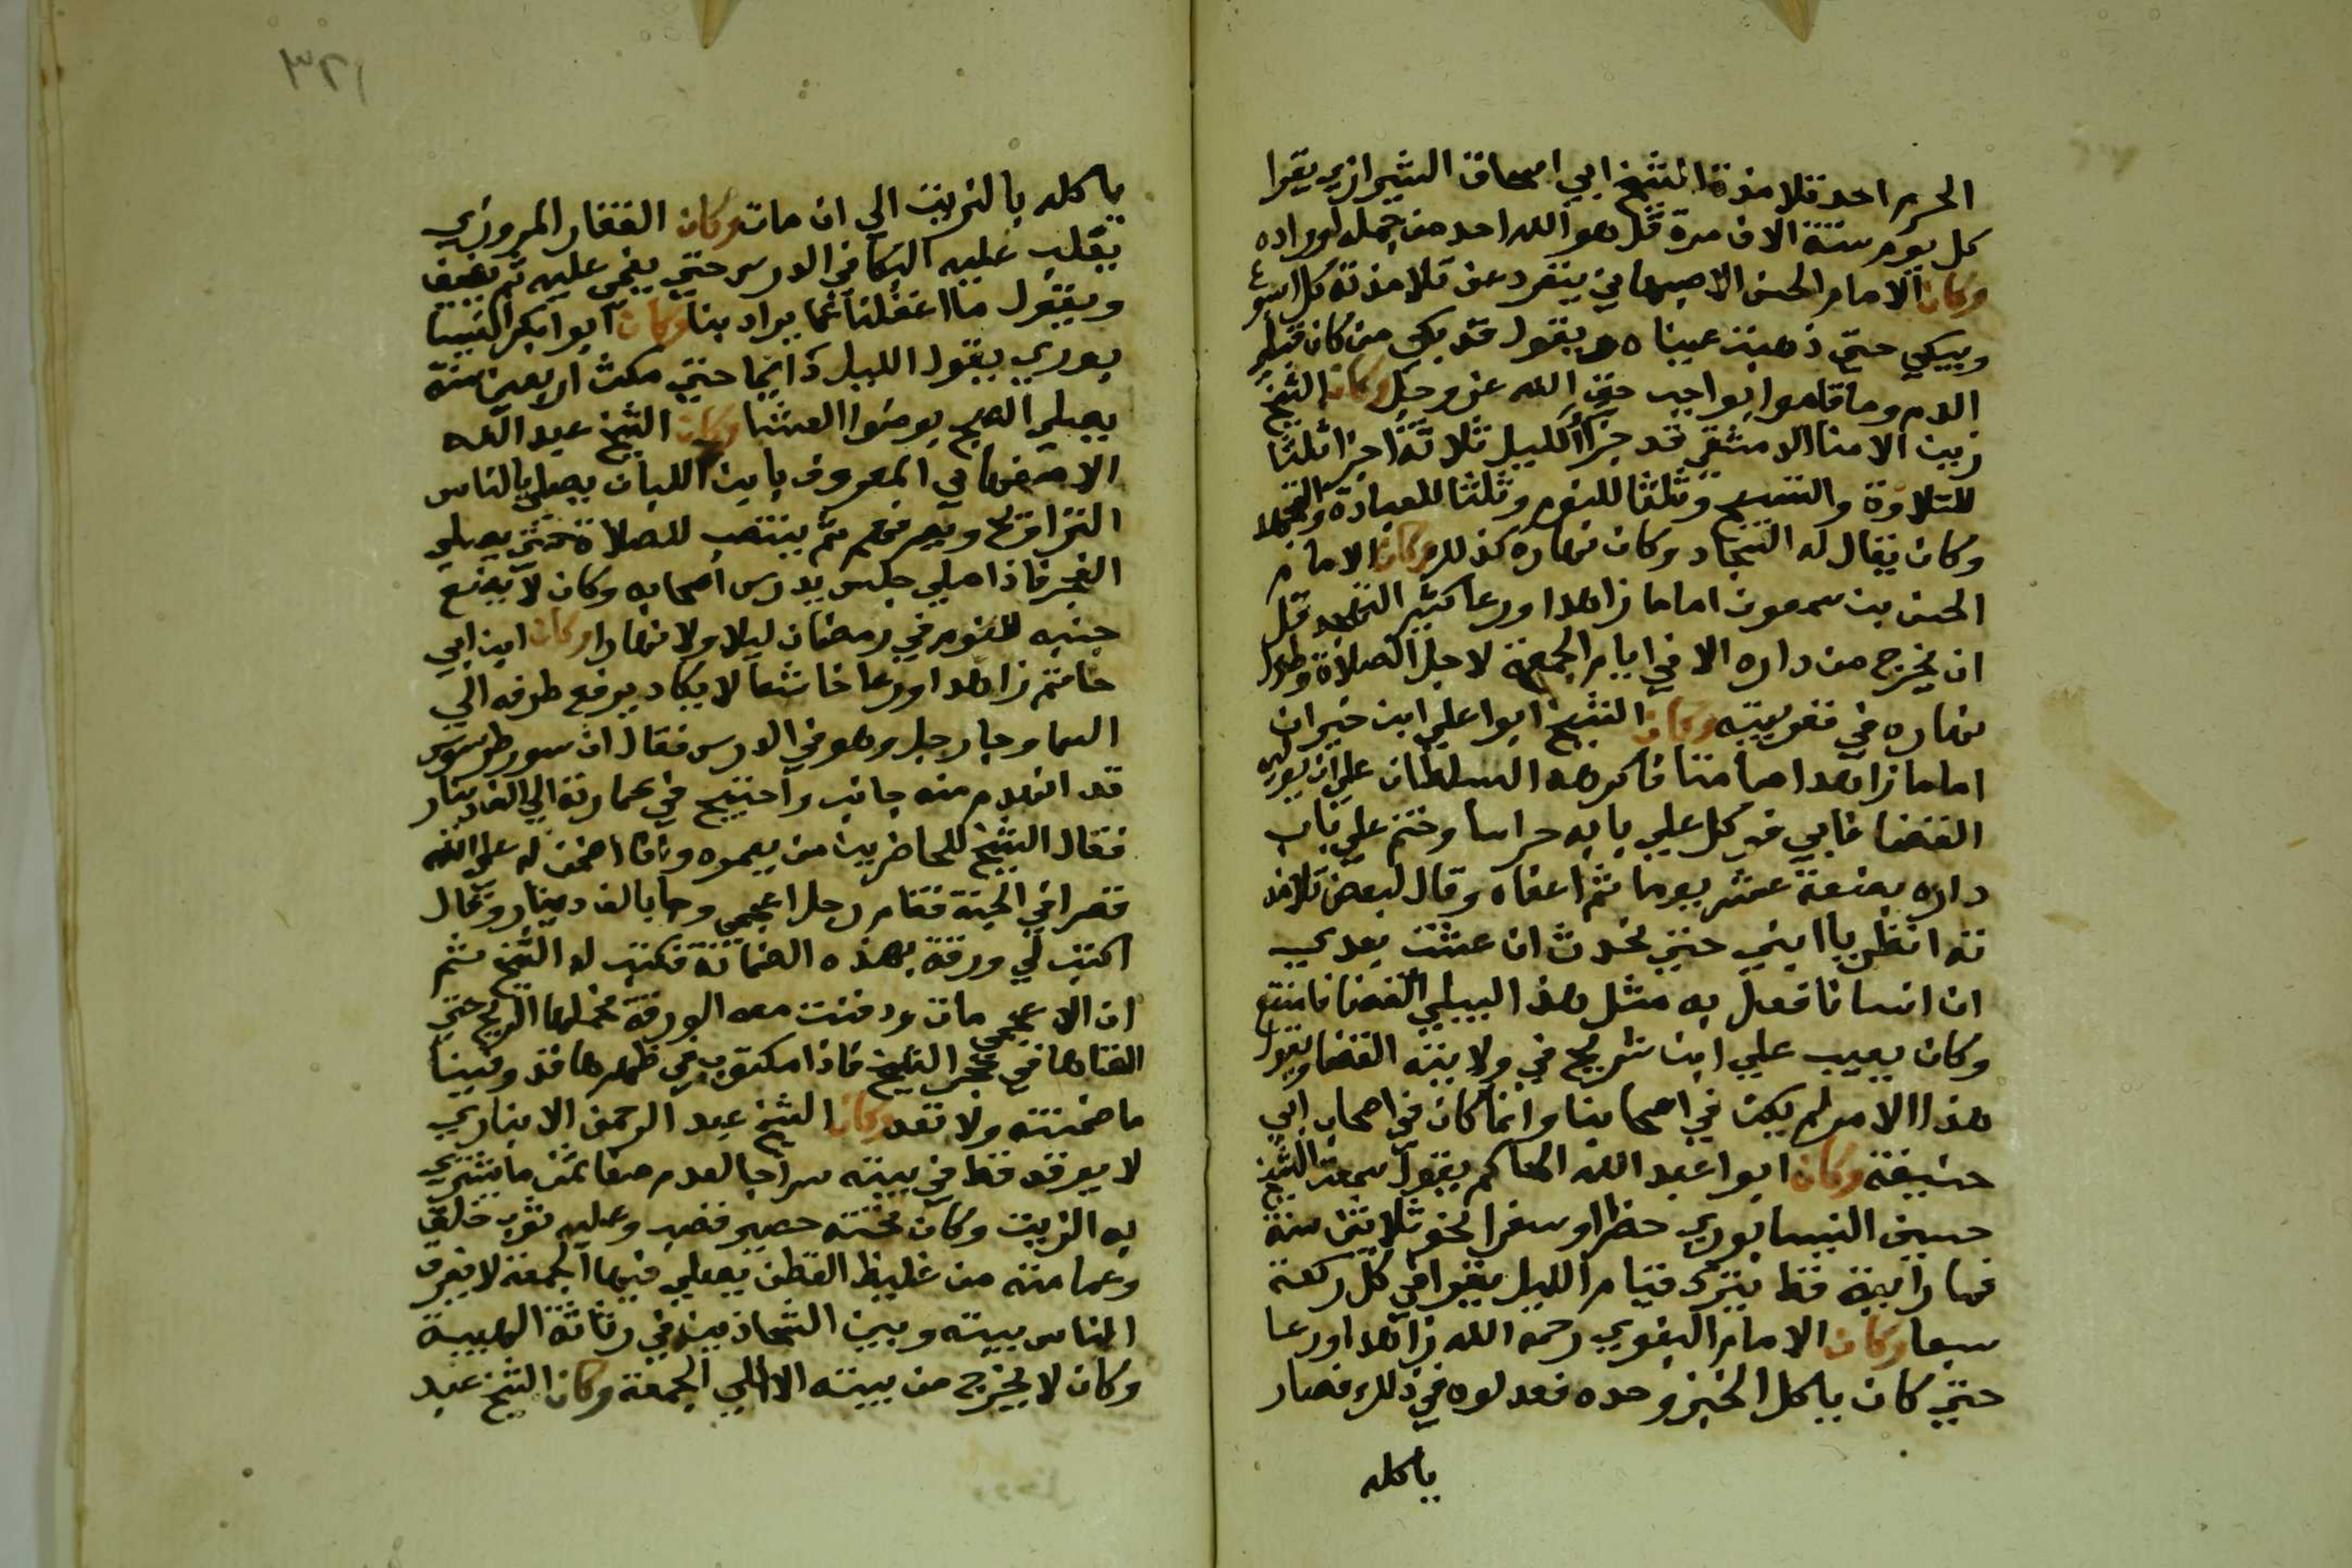 الحربي احد تلامذة الشيخ ابي اسحاق الشيرازي يقرا
كل يوم ستة الاف مرة قل هو الله احد من جملة اوراده
وكان الامام الحسن الاصبهاني ينفرد عن تلامذته كل اسبوع
ويبكي حتي ذهبت عيناه ويقول قد بكي من كان قبلي
الدم وما قاموا بواجب حق الله عز وجل وكان الشيخ
زين الامنا الدمشقي قد جزأ الليل ثلاثة اجزا ثلثا
للتلاوة والتسبيح وثلثا للنوم وثلثا للعبادة والتهجد
وكان يقال له السجاد وكان نهاره كذلك وكان الامام
الحسن بن سمعون اماما زاهدا ورعا كثير التهجد قل
ان يخرج من داره الا في ايام الجمعة لاجل الصلاة وطول
نهاره في قعر بيته وكان الشيخ ابوا علي ابن خيران
اماما زاهدا صامتا فاكرهه السلطان علي ان يوليه
القضا فابي فوكل علي بابه حراسا وختم علي باب
داره بضعة عشر يوما ثم اعفاه وقال لبعض تلامذ
ته انظر يا ابني حتي تحدث ان عشت بعدي
ان انسانا فعل به مثل هذا ليلي القضا فامتنع
وكان يعيب علي ابن شريح في ولايته القضا ويقول
هذا الامر لم يكن في اصحابنا وانما كان في اصحاب ابي
حنيفة وكان ابوا عبد الله الحاكم يقول سمعت الشيخ
حسين النيسابوري حضرا وسفرا نحو ثلاثين سنة
فما رايته قط يترك قيام الليل يقرا في كل ركعة
سبعا وكان الامام البغوي رحمه الله زاهدا ورعا
حتي كان ياكل الخبز وحده فعدلوه في ذلك فصار
ياكله
١٣٢
ياكله بالزيت الي ان مات وكان القفار المروزي
يغلب عليه البكا في الدرس حتي يغمي عليه ثم يفيق
ويقول ما اغفلنا عما يراد بنا وكان ابوا بكر النيسا
بوري يقوم الليل دايما حتي مكث اربعين سنة
يصلي الصبح بوضوا العشا وكان الشيخ عبد الله
الاصفهاني المعروف بابن اللبان يصلي بالناس
التراويح ويصرفهم ثم ينتصب للصلاة حتي يصلي
الفجر فاذا صلي جلس يدرس اصحابه وكان لا يضع
جنبه للنوم في رمضان ليلا ولا نهارا وكان ابن ابي
حاتم زاهدا ورعا خاشعا لا يكاد يرفع طرفه الي
السما وجا رجل وهو في الدرس فقال ان سور طرسوس
قد انهدم منه جانب واحتيج في عمارته الي الف دينار
فقال الشيخ للحاضرين من يعمره وانا اضمن له علي الله
قصرا في الجنة فقام رجل اعجمي وجا بالف دينار وقال
اكتب لي ورقة بهذه الضمانة فكتب له الشيخ ثم
ان الاعجمي مات ودفنت معه الورقة فحملها الريح حتي
القاها في حجر الشيخ فاذا مكتوب في ظهرها قد وفينا
ما ضمنته ولا تعد وكان الشيخ عبد الرحمن الانباري
لا يوقد قط في بيته سراجا لعدم صفا ثمن ما يشتري
به الزيت وكان تحته حصير قصب وعليه ثوب خلق
وعمامته من غليظ القطن يصلي فيها الجمعة لا يفرق
الناس بينه وبين الشحاذين في رثاثة الهيبة
وكان لا يخرج من بيته الا الي الجمعة وكان الشيخ عبد